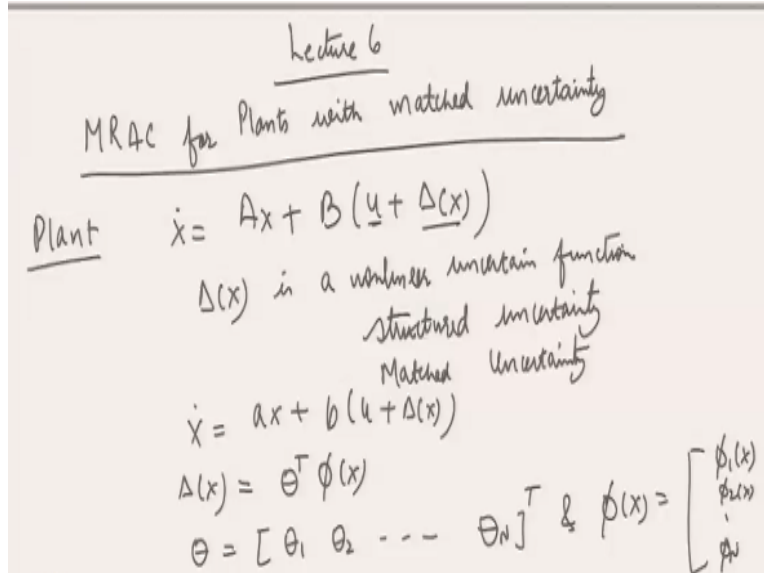 Lecture 6
MRAC for Plants with matched uncertainty
Plant ẋ = Ax + B(u + Δ(x))
Δ(x) is a nonlinear uncertain function
structured uncertainty
Matched Uncertainty
ẋ = ax + b(u + Δ(x))
Δ(x) = θᵀ ϕ(x)
θ = [θ₁ θ₂ --- θ_N]ᵀ & ϕ(x) = [ϕ₁(x)
ϕ₂(x)
⋮
ϕ_N